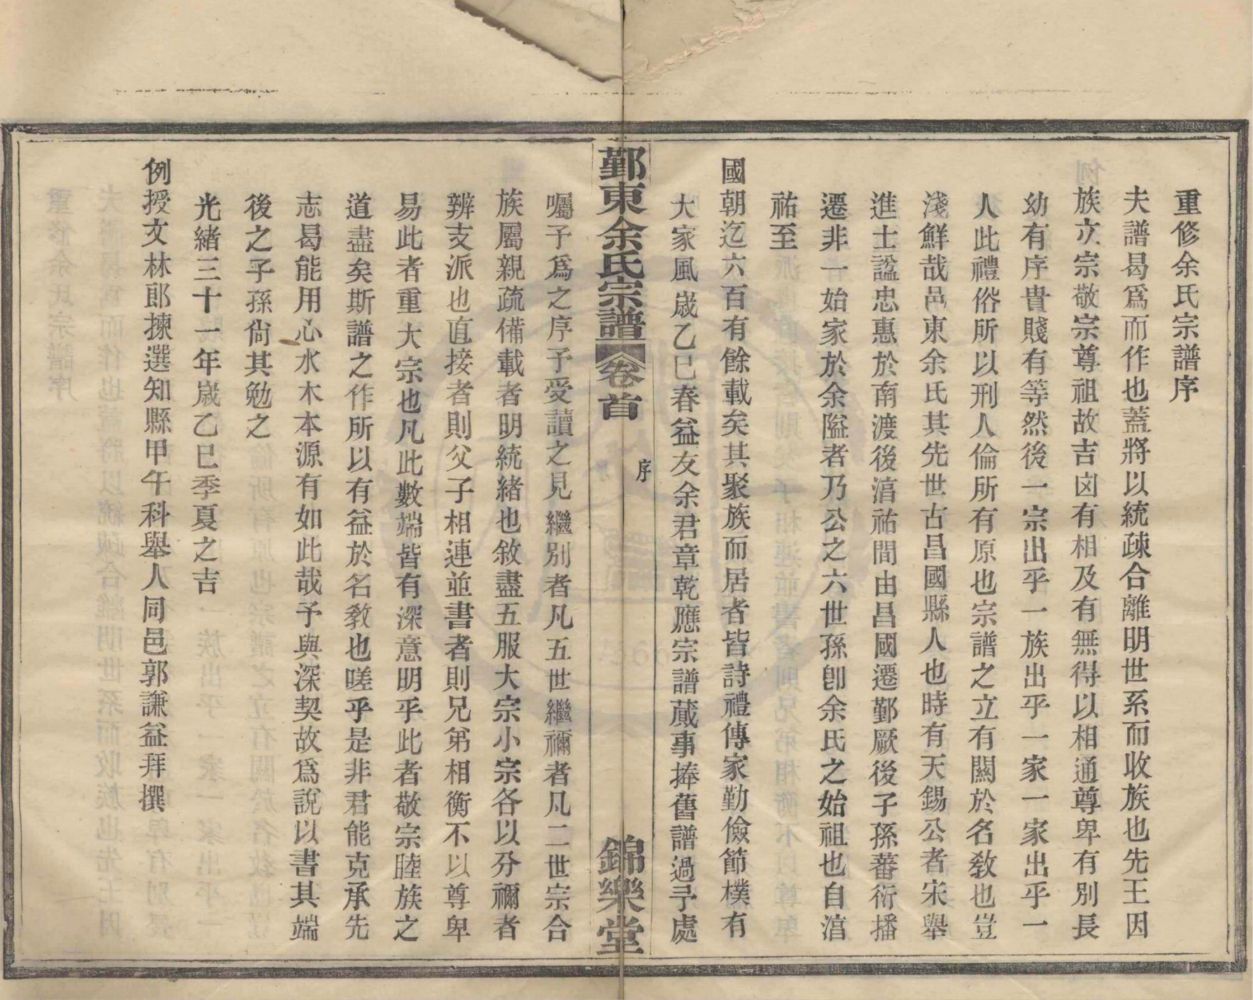 重修余氏宗譜序
夫譜曷爲而作也蓋將以統疎合離明世系而收族也先王因
族立宗敬宗尊祖故吉凶有相及有無得以相通尊卑有別長
幼有序貴賤有等然後一宗出乎一族出乎一家一家出乎一
人此禮俗所以刑人倫所有原也宗譜之立有關於名教也豈
淺鮮哉邑東余氏其先世古昌國縣人也時有天錫公者宋舉
進士諡忠惠於南渡後湻祐間由昌國遷鄞厥後子孫蕃衍播
遷非一始家於余隘者乃公之六世孫卽余氏之始祖也自湻
祐至
國朝迄六百有餘載矣其聚族而居者皆詩禮傳家勤儉節樸有
大家風歲乙巳春益友余君章乾應宗譜蕆事捧舊譜過予處
鄞東余氏宗譜
卷首
序
錦樂堂
囑予爲之序予受讀之見繼別者凡五世繼禰者凡二世宗合
族屬親疏備載者明統緒也敘盡五服大宗小宗各以分禰者
辨支派也直接者則父子相連並書者則兄弟相衡不以尊卑
易此者重大宗也凡此數端皆有深意明乎此者敬宗睦族之
道盡矣斯譜之作所以有益於名教也嗟乎是非君能克承先
志曷能用心水木本源有如此哉予與深契故爲說以書其端
後之子孫尙其勉之
光緒三十一年歲乙巳季夏之吉
例授文林郎揀選知縣甲午科舉人同邑郭謙益拜撰